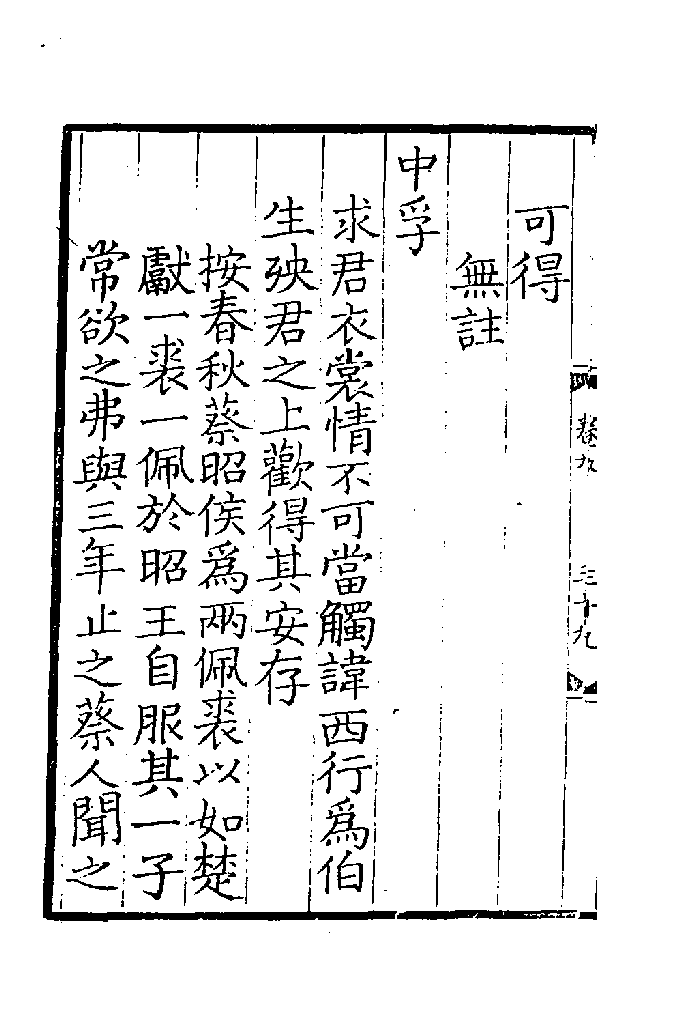 可得
無註
中孚
求君衣裳情不可當觸諱西行爲伯
生殃君之上歡得其安存
按春秋蔡昭侯爲兩佩裘以如楚
獻一裘一佩於昭王自服其一子
常欲之弗與三年止之蔡人聞之
卷九
三十九